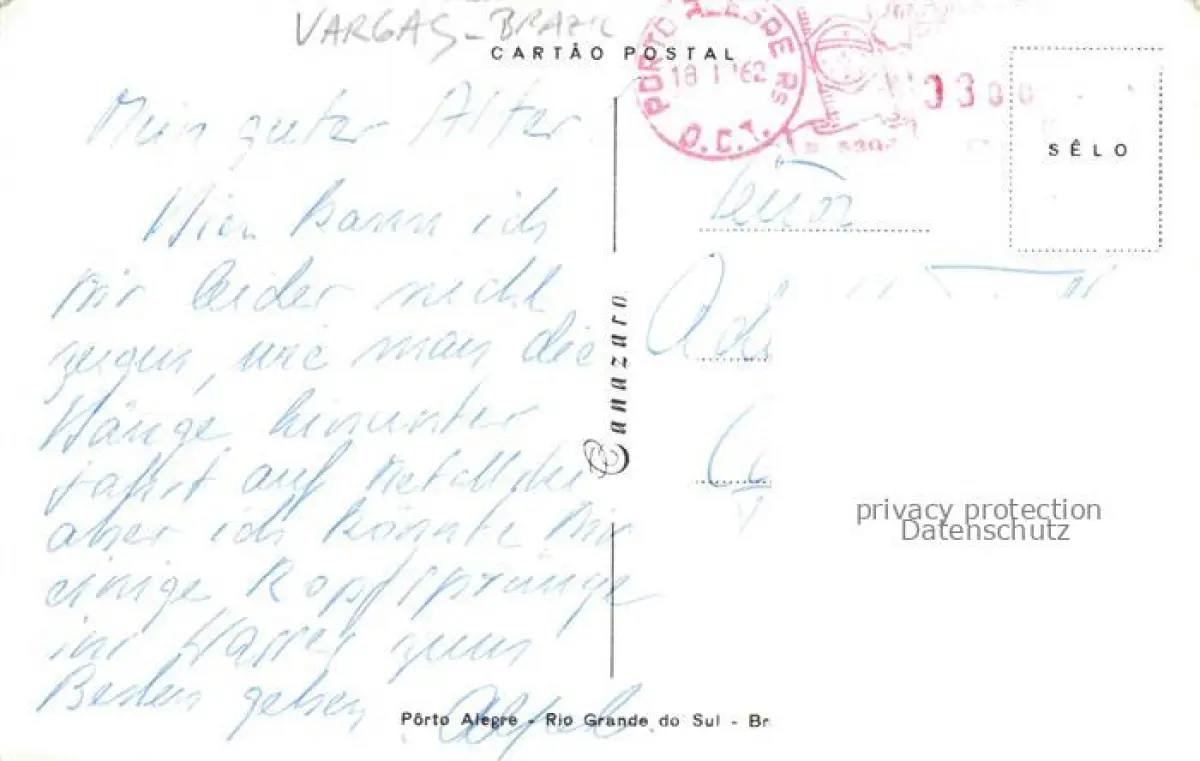 VARGAS - BRAZIL
CARTÃO POSTAL
PORTO ALEGRE RS
18 1 62
D.C.T.
SÊLO
Mein guter Alter.
Hier kann ich
Dir leider nicht
zeigen, wie man die
Hänge hinunter
fährt auf
aber ich könnte Dir
einige Kopfsprünge
ins Wasser zum
Besten geben.
Canazaro
privacy protection
Datenschutz
Pôrto Alegre - Rio Grande do Sul - Br